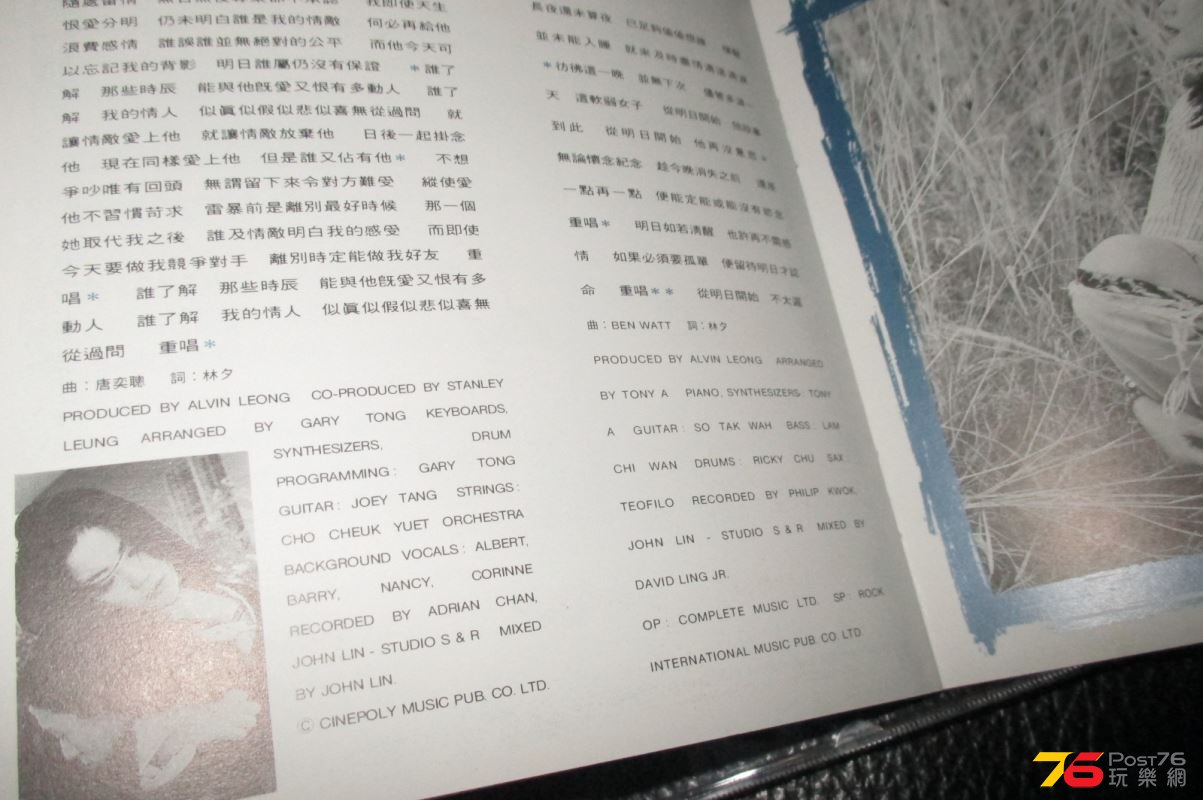 隨處留情
我即使天生
恨愛分明　仍未明白誰是我的情敵　何必再給他
浪費感情　誰誤誰並無絕對的公平　而他今天可
以忘記我的背影　明日誰屬仍沒有保證　*誰了
解　那些時辰　能與他旣愛又恨有多動人　誰了
解　我的情人　似眞似假似悲似喜無從過問　就
讓情敵愛上他　就讓情敵放棄他　日後一起掛念
他　現在同樣愛上他　但是誰又佔有他*　不想
爭吵唯有回頭　無謂留下來令對方難受　縱使愛
他不習慣苛求　雷暴前是離別最好時候　那一個
她取代我之後　誰及情敵明白我的感受　而即使
今天要做我競爭對手　離別時定能做我好友　重
唱*　誰了解　那些時辰　能與他旣愛又恨有多
動人　誰了解　我的情人　似眞似假似悲似喜無
從過問　重唱*
曲：唐奕聰　詞：林夕
PRODUCED BY ALVIN LEONG CO-PRODUCED BY STANLEY
LEUNG ARRANGED BY GARY TONG KEYBOARDS,
SYNTHESIZERS, DRUM
PROGRAMMING: GARY TONG
GUITAR: JOEY TANG STRINGS:
CHO CHEUK YUET ORCHESTRA
BACKGROUND VOCALS: ALBERT,
BARRY, NANCY, CORINNE
RECORDED BY ADRIAN CHAN,
JOHN LIN - STUDIO S & R MIXED
BY JOHN LIN.
Ⓒ CINEPOLY MUSIC PUB. CO. LTD.
長夜還未算夜　已足夠
並未能入睡　就來及時盡情
*彷彿這一晚　並無下次
天　這軟弱女子　從明日開始
到此　從明日開始　他再沒意思*
無論懷念紀念　趁今晚消失之前
一點再一點　便能定能或能沒有
重唱*　明日如若淸醒　也許再不需感
情　如果必須要孤單　便留待明日才認
命　重唱**　從明日開始　不太遲
曲：BEN WATT　詞：林夕
PRODUCED BY ALVIN LEONG ARRANGED
BY TONY A PIANO, SYNTHESIZERS: TONY
A GUITAR: SO TAK WAH BASS: LAM
CHI WAN DRUMS: RICKY CHU SAX:
TEOFILO RECORDED BY PHILIP KWOK,
JOHN LIN - STUDIO S & R MIXED BY
DAVID LING JR.
OP: COMPLETE MUSIC LTD. SP: ROCK
INTERNATIONAL MUSIC PUB. CO. LTD.
76 Post76
玩樂網